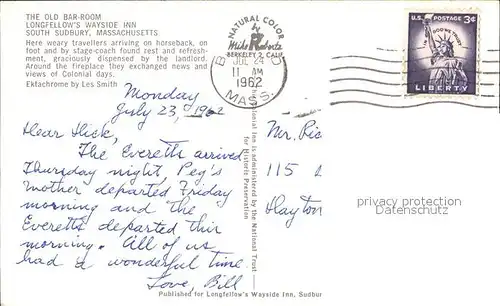 THE OLD BAR-ROOM
LONGFELLOW'S WAYSIDE INN
SOUTH SUDBURY, MASSACHUSETTS
Here weary travellers arriving on horseback, on
foot and by stage-coach found rest and refresh-
ment, graciously dispensed by the landlord.
Around the fireplace they exchanged news and
views of Colonial days.
Ektachrome by Les Smith
NATURAL COLOR
Mike Roberts
BERKELEY 2, CALIF.
JUL 24
11 AM
1962
MASS.
U.S. POSTAGE 3¢
IN GOD WE TRUST
LIBERTY
Monday
July 23, 1962
Dear Dick,
The Everetts arrived
Thursday night, Peg's
mother departed Friday
morning and the
Everetts departed this
morning. All of us
had a wonderful time.
Love, Bill
Colonial Inn is administered by the National Trust
for Historic Preservation
Mr. Ric
115
Dayton
privacy protection
Datenschutz
Published for Longfellow's Wayside Inn, Sudbur